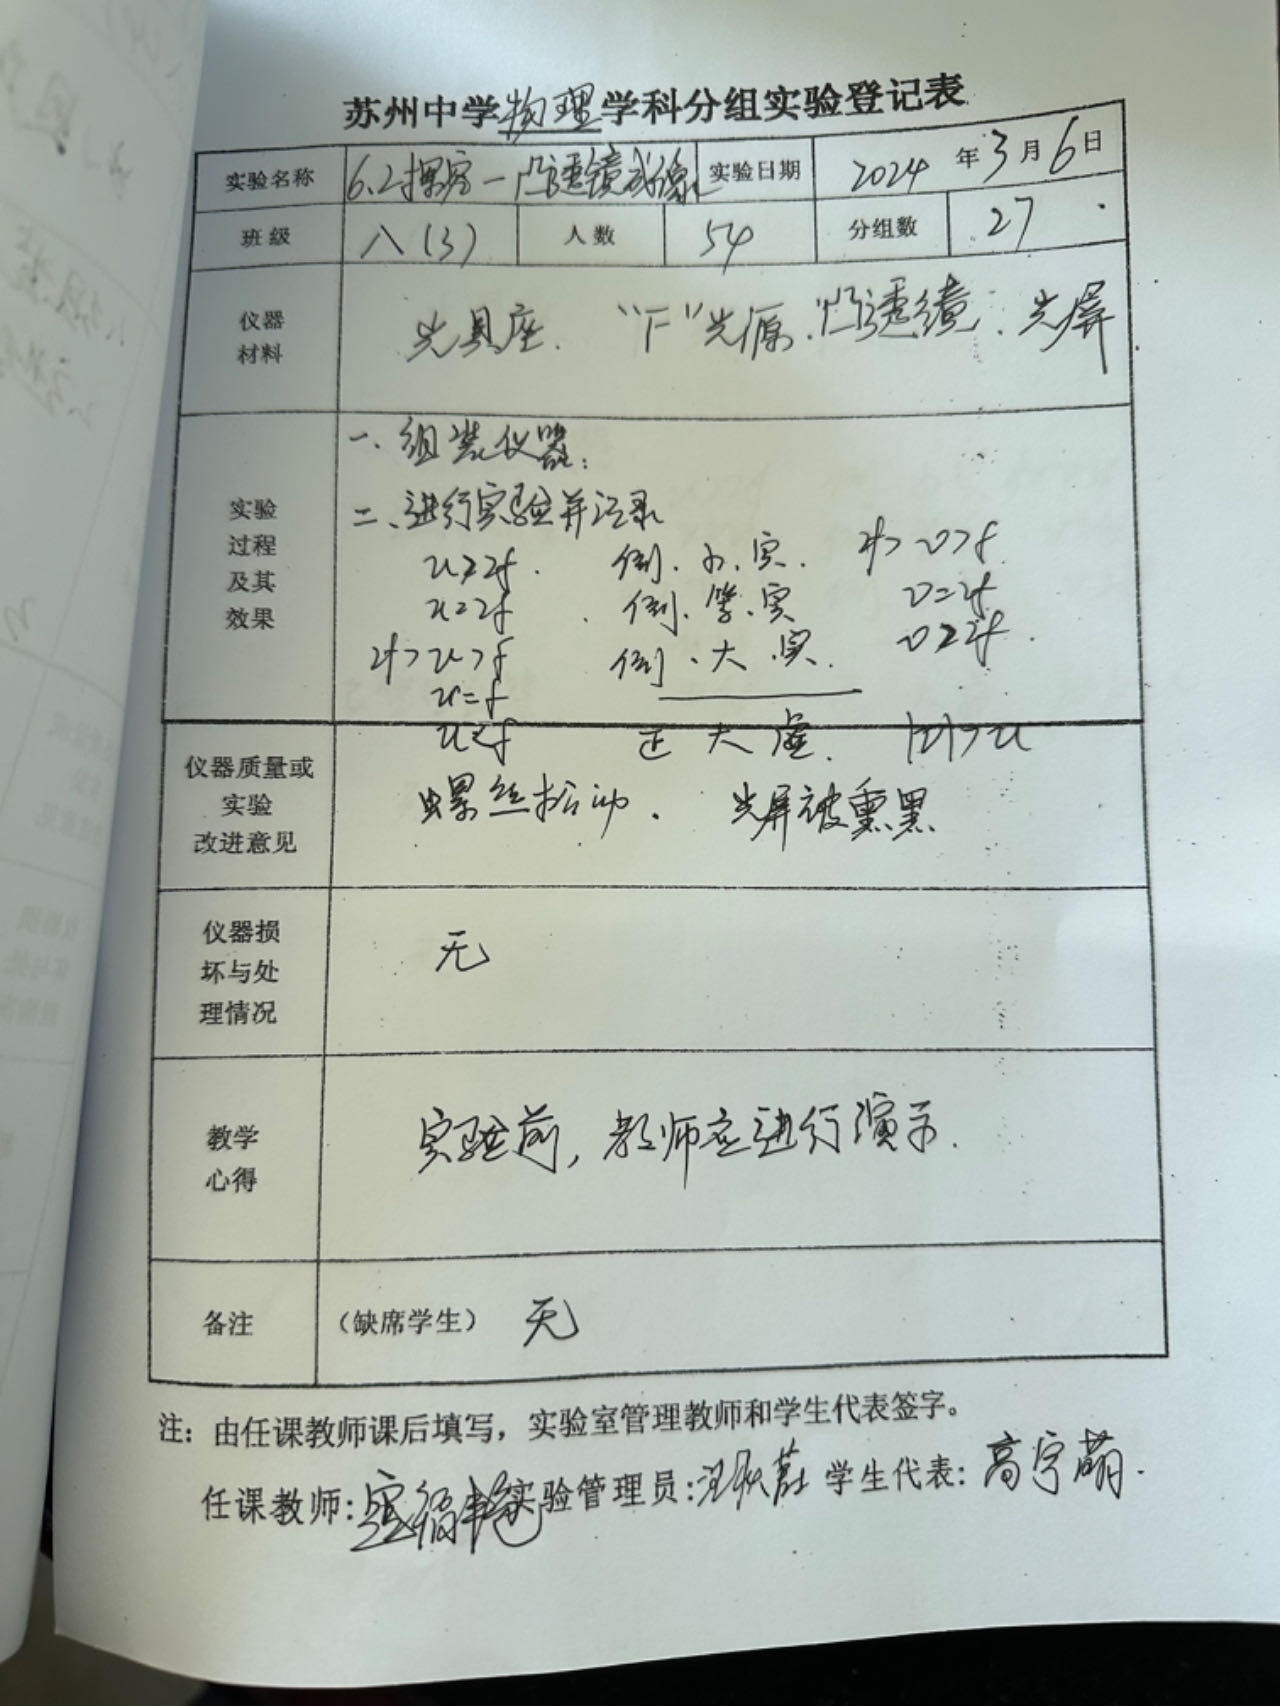 苏州中学物理学科分组实验登记表
实验名称 6.2探究—凸透镜成像 实验日期 2024年3月6日
班级 八(3) 人数 54 分组数 27
仪器
材料
光具座、“F”光源、凸透镜、光屏
实验
过程
及其
效果
一、组装仪器;
二、进行实验并记录
u>2f. 倒、小、实. 2f>v>f
u=2f 倒、等、实 v=2f
2f>u>f 倒、大、实. v>2f.
u=f
u<f 正 大 虚. |v|>u
仪器质量或
实验
改进意见
螺丝松动. 光屏被熏黑
仪器损
坏与处
理情况
无
教学
心得
实验前,教师应进行演示.
备注 (缺席学生) 无
注:由任课教师课后填写,实验室管理教师和学生代表签字。
任课教师: 实验管理员: 学生代表:高宇萌.